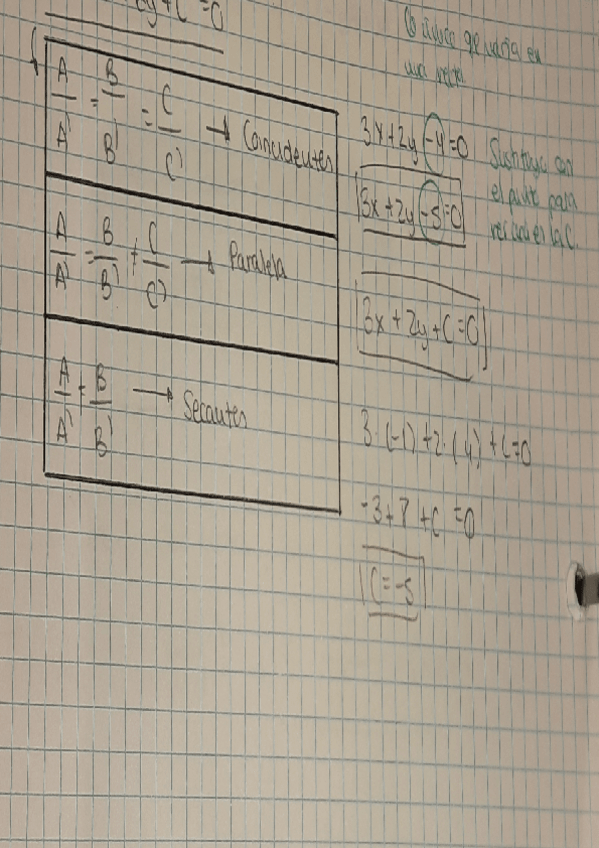 y+C=0
A/A' = B/B' = C/C' → Coincidentes
A/A' = B/B' ≠ C/C' → Paralela
A/A' ≠ B/B' → Secantes
Lo único que varía en
una recta.
3x+2y-4=0
3x+2y-5=0
Sustituyo con
el punto para
la C.
3x+2y+C=0
3·(-1)+2·(4)+C=0
-3+8+C=0
C=-5